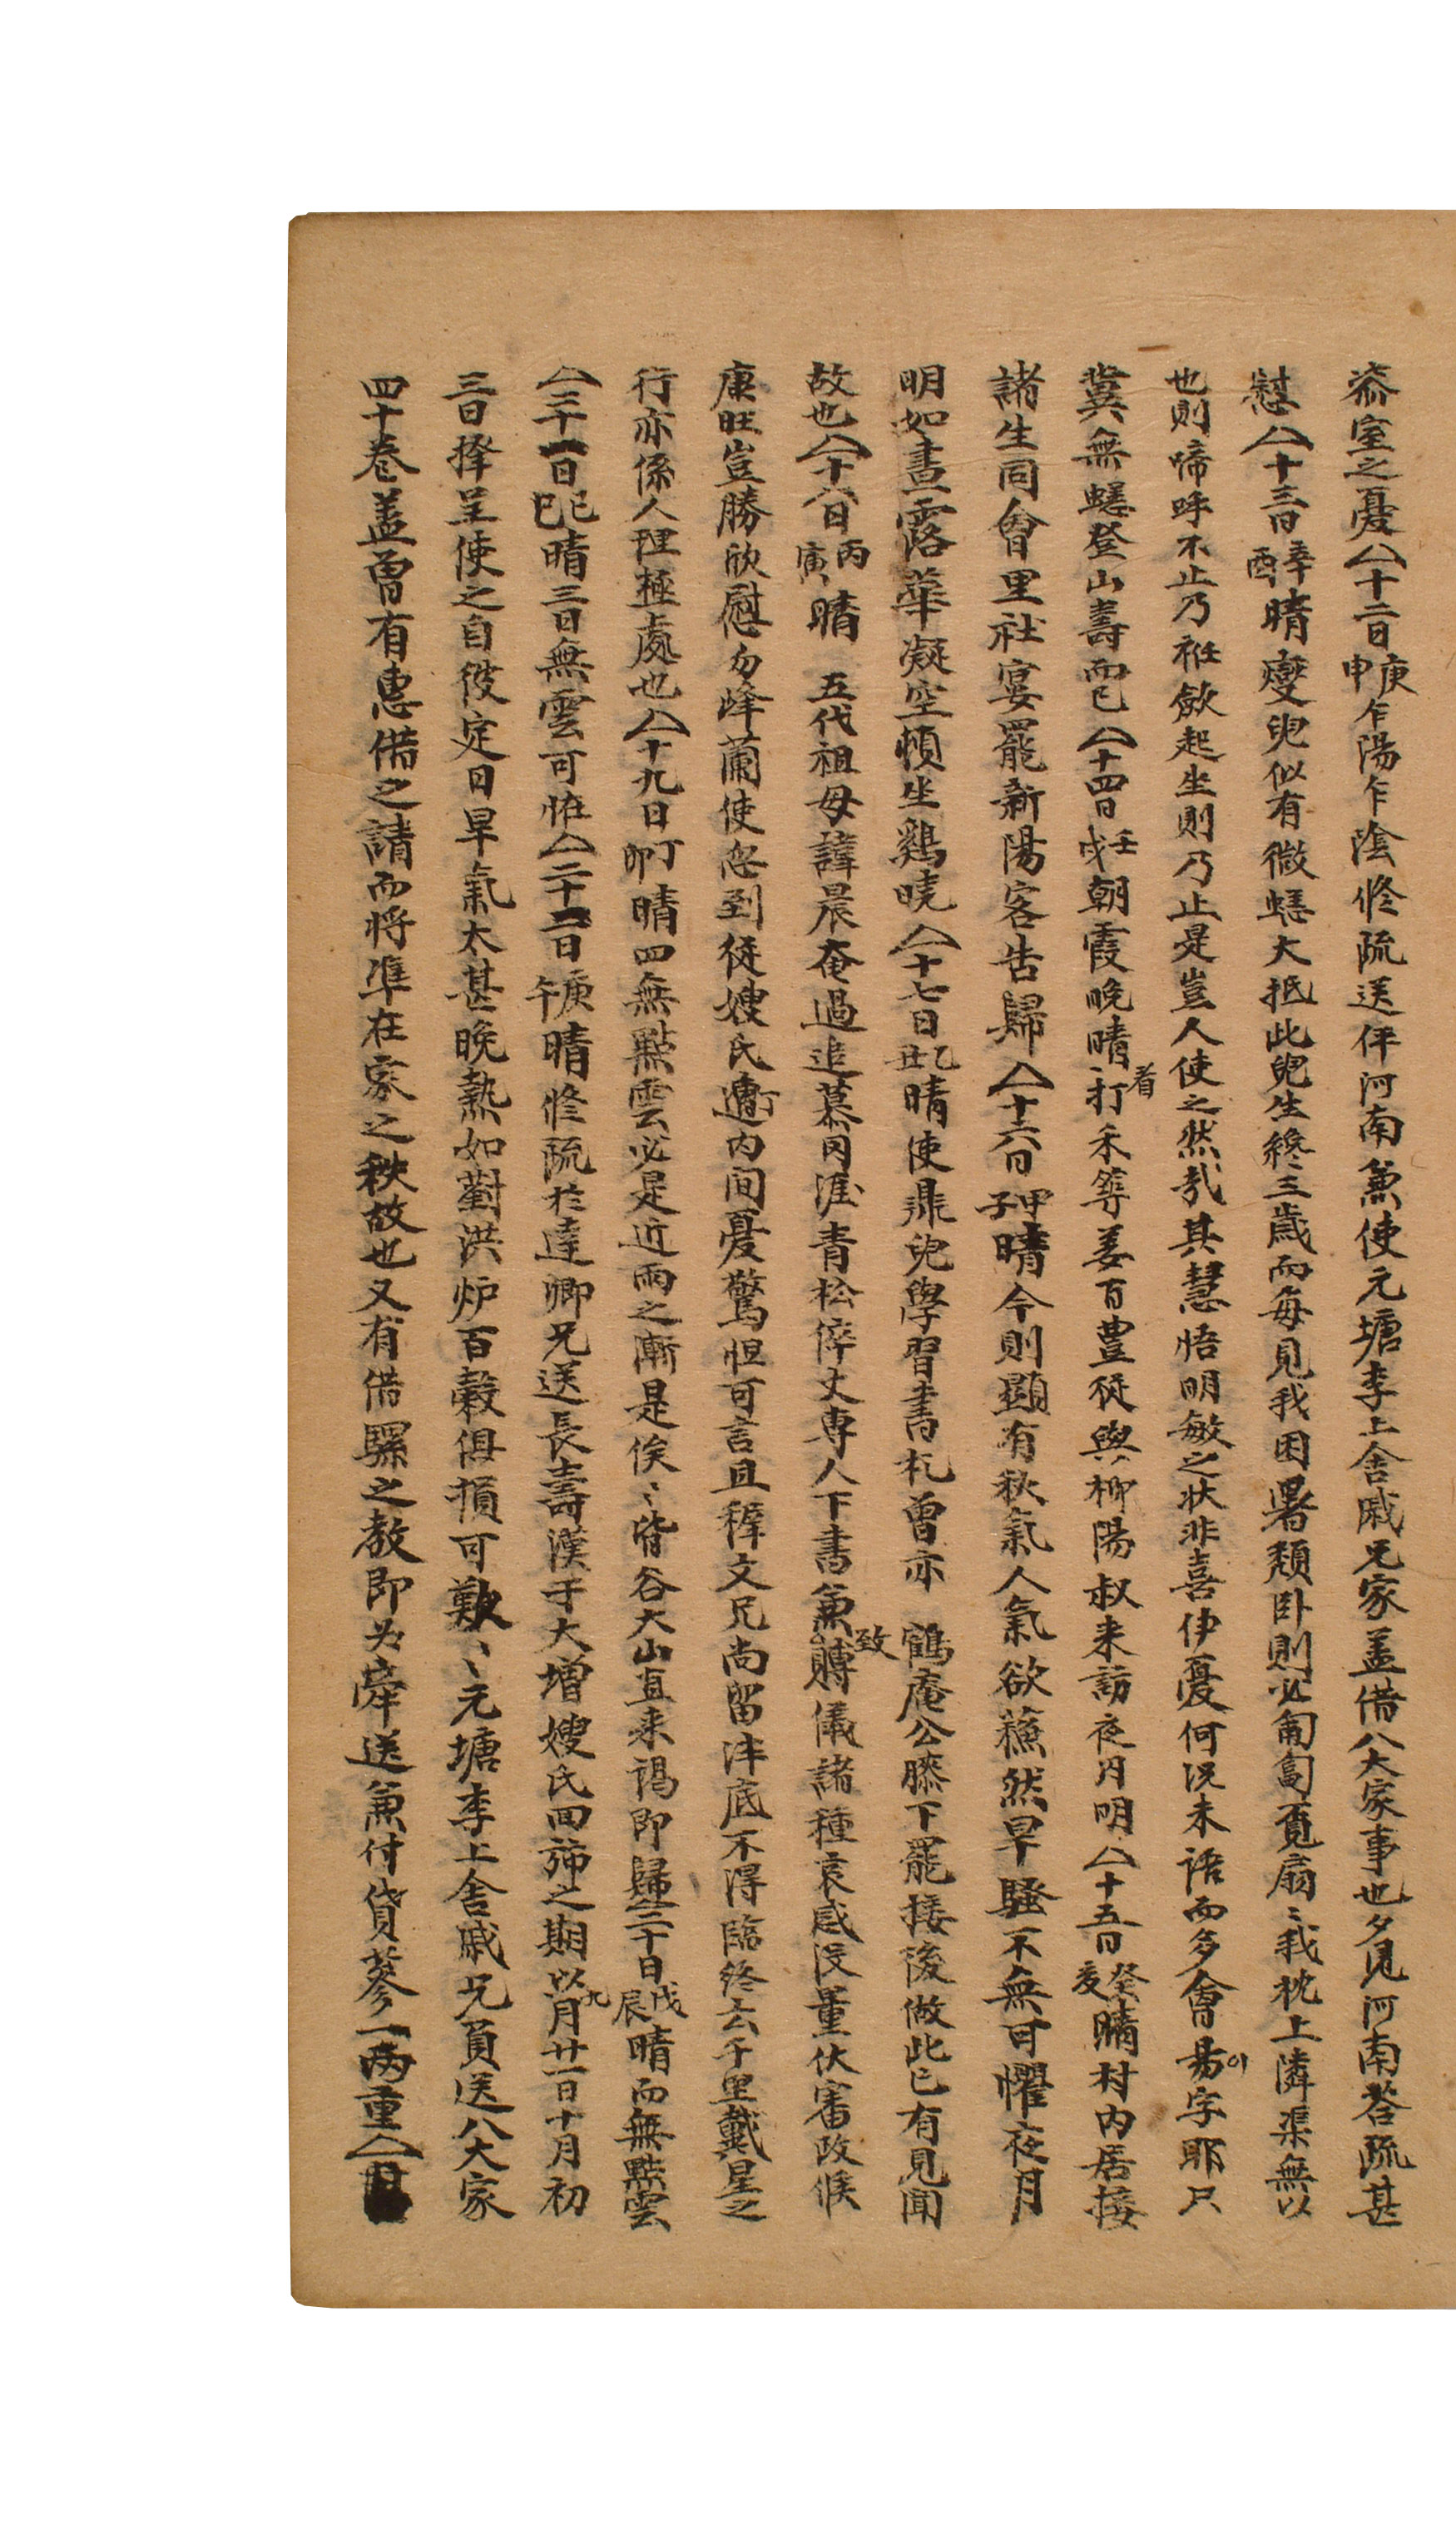 粢室之憂〈十二日庚申乍陽乍陰修疏送伻河南兼使元塘李上舍戚兄家盖借八大家事也夕見河南答疏甚
慰〈十三日辛酉晴燮兒似有微蠚大抵此兒生纔三歲而每見我困暑頹卧則必匍匐覔扇〻我枕上隣渠無以
也則啼呼不止乃袵斂起坐則乃止是豈人使之然㢤其慧悟明敏之狀非喜伊憂何况未語而多會昜이字耶只
冀無蠚登山壽而已〈十四日壬戌朝霞晩晴打禾着筭姜百豊從與柳陽叔来訪夜月明〈十五日癸亥晴村內居接
諸生同會里社宴罷新陽客告歸〈十六日甲子晴今則顯有秋氣人氣欲蘓然旱騷不無可懼夜月
明如晝露華凝空頓坐鷄曉〈十七日乙丑晴使鼎兒學習書札曾亦 鶴庵公膝下罷接後做此已有見聞
故也〈十八日丙寅晴 五代祖母諱晨奄過追慕罔涯青松倅丈専人下書兼致賻儀諸種哀感沒量伏審政候
康旺豈勝欣慰勿峰蘭使忽到從嫂氏遭丁內间憂驚怛可言且稺文兄尚留泮底不得臨終云千里戴星之
行亦係人理極處也〈十九日丁卯晴四無點雲必是近雨之漸是俟〻肯谷大山直来謁即歸〈二十日戊辰晴而無點雲
〈二十一日己巳晴三日無雲可恠〈二十二日庚午晴修疏於達卿兄送長壽漢于大增嫂氏回斾之期以九月廿一日十月初
三日擇呈使之自彼定日旱氣太甚晩熱如對洪炉百穀俱損可歎〻元塘李上舍戚兄負送八大家
四十卷盖曾有惠借之請而将準在家之秩故也又有借騾之教即为牽送兼付貸蔘一両重〈